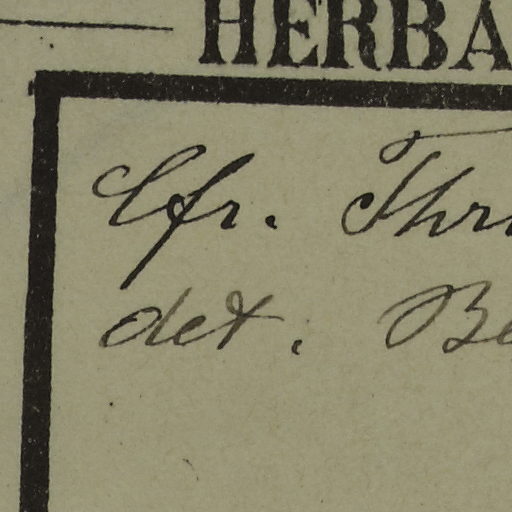 HERBA
Cfr. Thr
det. Be